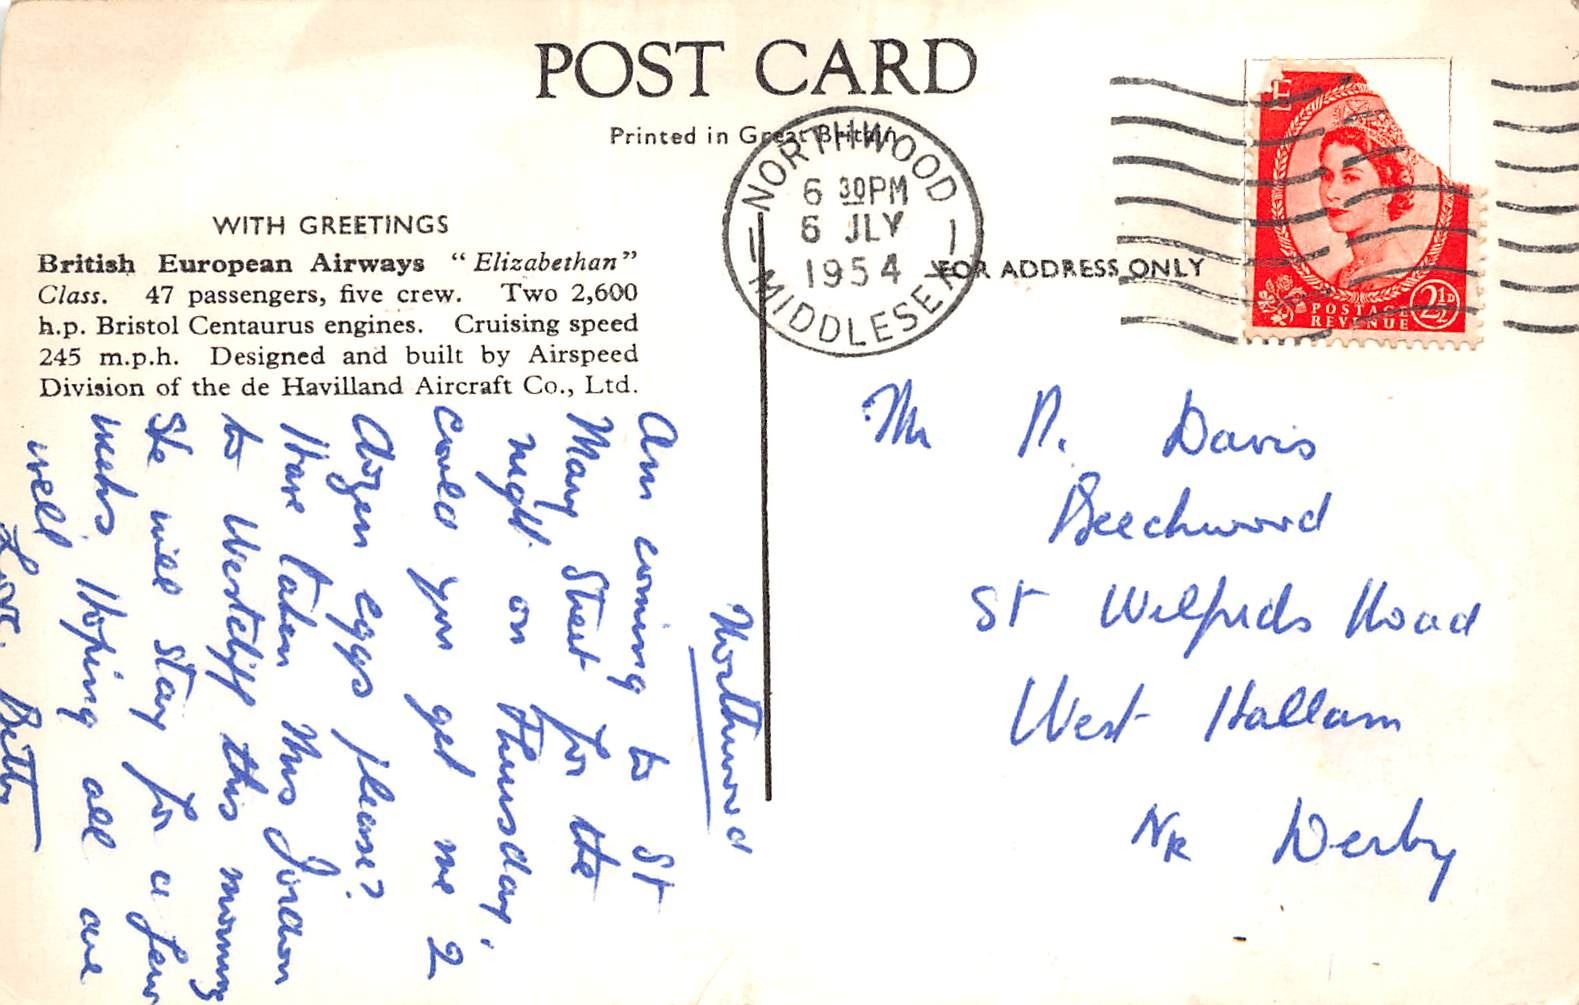 POST CARD
Printed in Great Britain
WITH GREETINGS
British European Airways "Elizabethan"
Class. 47 passengers, five crew. Two 2,600
h.p. Bristol Centaurus engines. Cruising speed
245 m.p.h. Designed and built by Airspeed
Division of the de Havilland Aircraft Co., Ltd.
NORTHWOOD
6 30PM
6 JLY
1954
MIDDLESEX
FOR ADDRESS ONLY
E
POSTAGE
REVENUE
2½D
Mr Davis
Beechwood
St Wilfrids Road
West Hallam
Nr Derby
Northwood
Am coming to St
Mary Street for the
night on Thursday,
Could you get me 2
dozen eggs please?
Have taken Mrs Jordan
to Westcliff this morning
She will stay for a few
weeks. Hoping all are
well
Love.